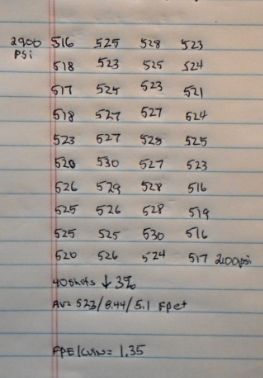 2900 516 525 528 523
psi 518 523 525 524
517 525 523 521
518 527 527 524
523 527 528 525
520 530 527 523
526 529 528 516
525 526 528 519
525 525 530 516
520 526 524 517 2100psi
40 shots ↓ 3%
Av= 523/8.44/5.1 FPE+
FPE/CUIN= 1.35